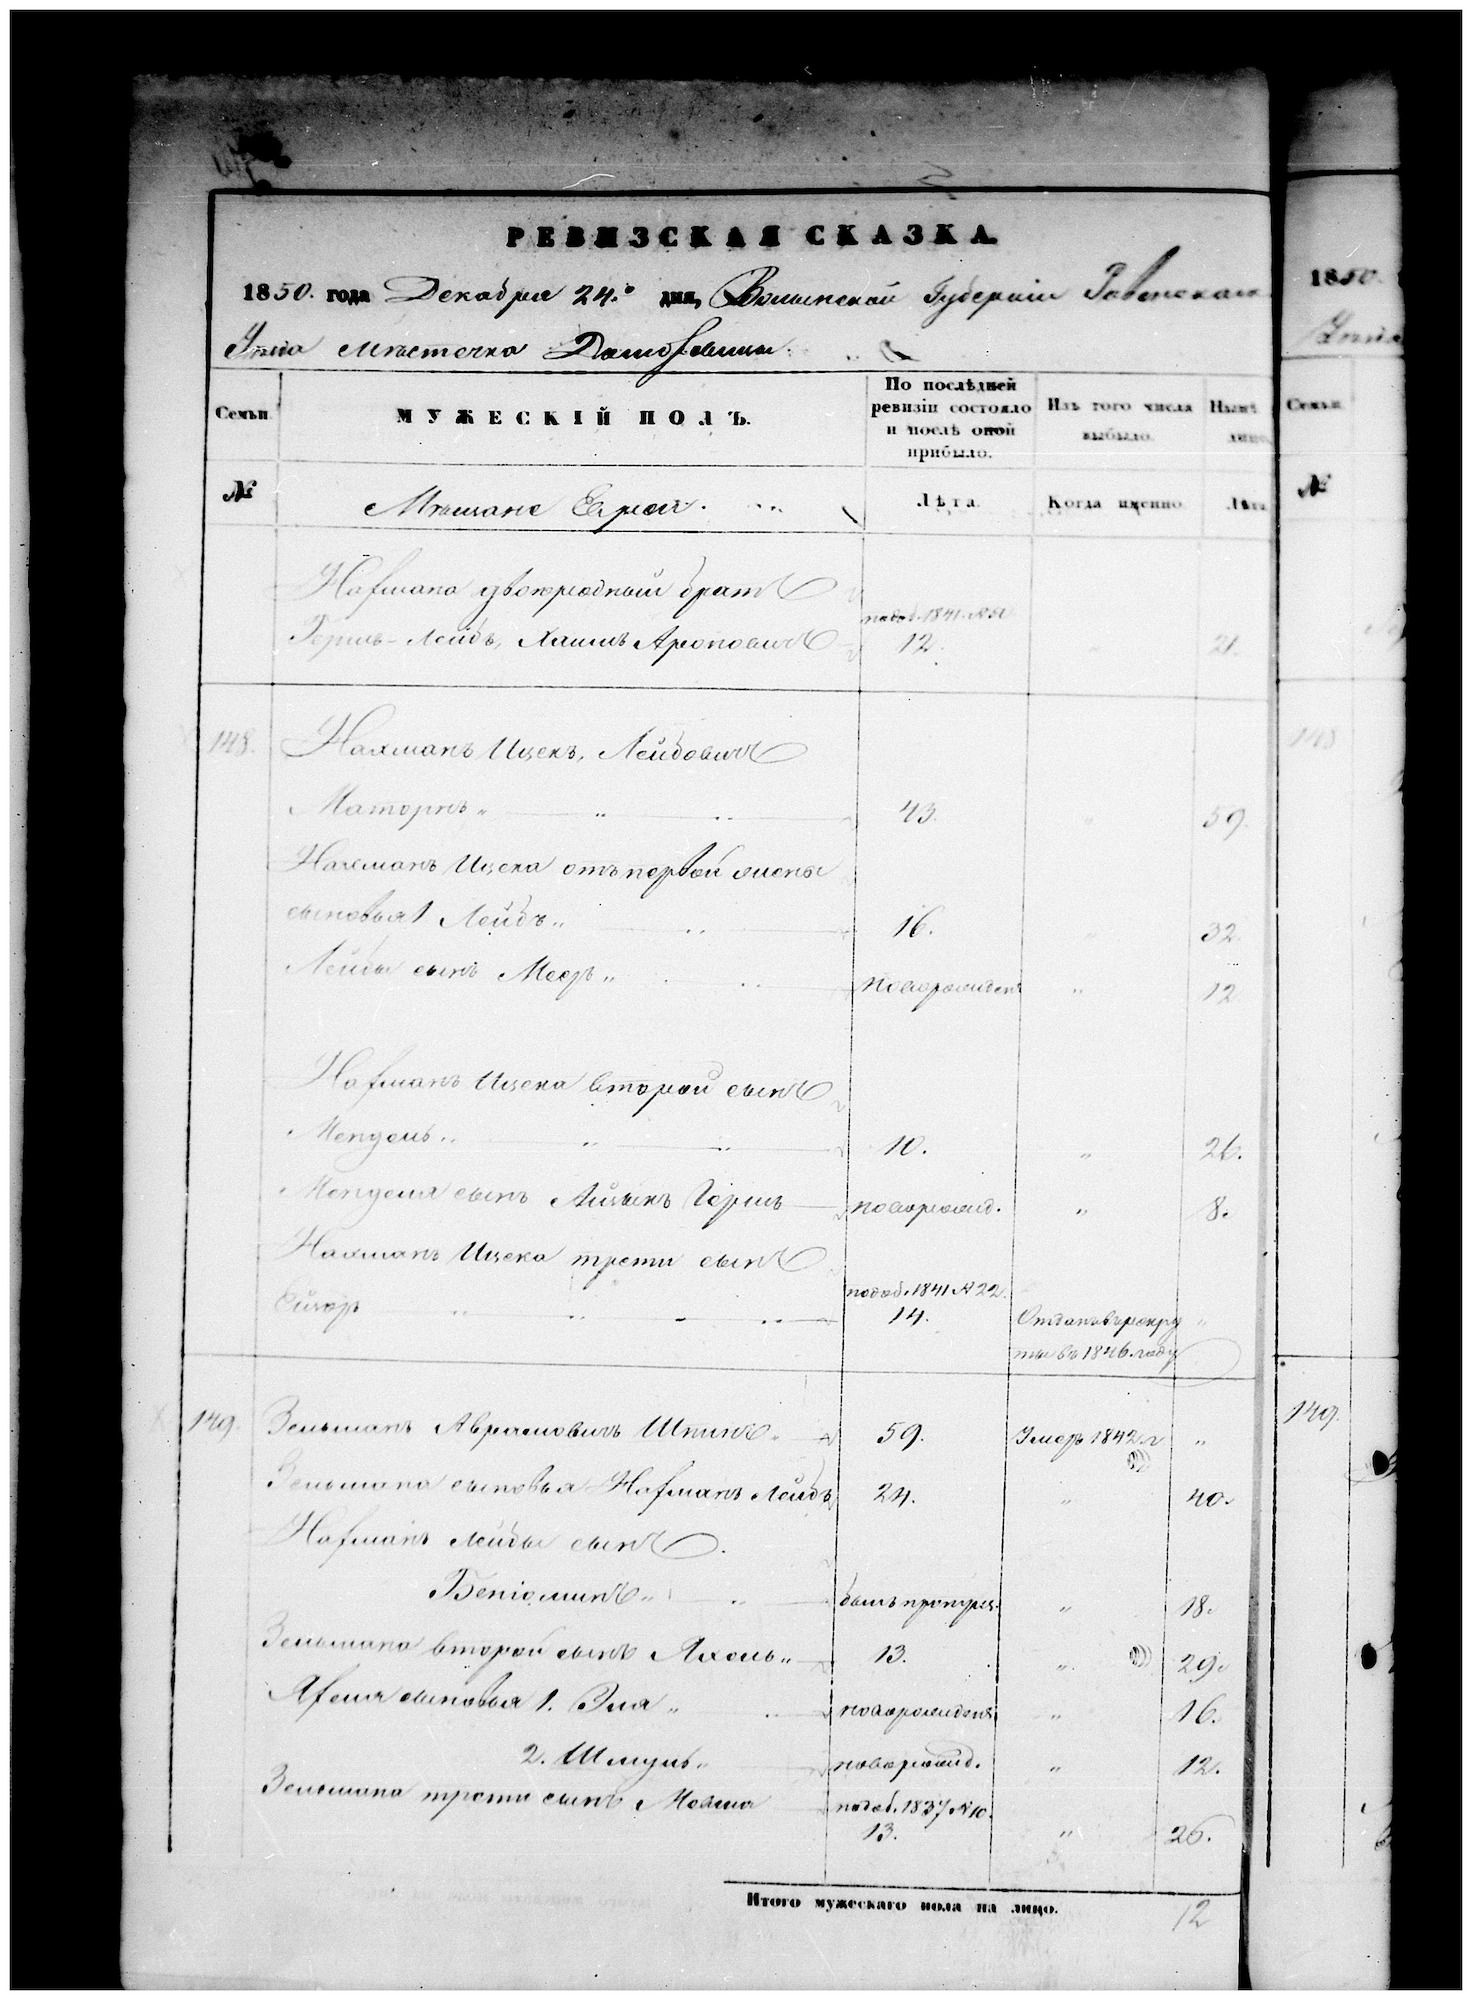 РЕВИЗСКАЯ СКАЗКА.
1850. года Декабря 24.го дня, Волынской Губернии Ровенскаго
Уезда местечка
1850.
Семьи.
МУЖЕСКІЙ ПОЛЪ.
По послѣдней ревизіи состояло и послѣ оной прибыло.
Изъ того числа выбыло.
Нынѣ лицо.
Семьи.
№
Мещане Евреи.
Лѣта.
Когда именно.
Лѣта.
№
Нахмана двоюродный братъ
подоб. 1841.
Гершъ-Лейбъ, Хаимъ Ароновичъ 12. 21.
148. Нахманъ Ицекъ, Лейбовичъ
148
Маторнъ „ „ „ 43. „ 59.
Нахманъ Ицека отъ первой жены
сыновья 1 Лейбъ „ „ 16. „ 32.
Лейбы сынъ Меэръ „ „ новорожденъ „ 12
Нахманъ Ицека второй сынъ
Мендель „ „ „ 10. „ 26.
Менделя сынъ Айзыкъ Гершъ новорожд. „ 8.
Нахманъ Ицека трети сынъ
подоб. 1841 № 22.
14. Отданъ въ рекру „
ты въ 1846 году
149. Зельманъ Аврамовичъ Шпинъ „ 59. Умеръ 1842 г „
149.
Зельмана сыновья Нахманъ Лейбъ 24. „ 40.
Нахманъ Лейбы сынъ.
Беніоминъ „ „ былъ „ 18.
Зельмана второй сынъ Яхель „ 13. „ 29.
Яхеля сыновья 1. Эля „ „ новорожденъ „ 16.
2. Шмуль „ новорожд. „ 12.
Зельмана трети сынъ Мошка подоб. 1837 № 10.
13. „ 26.
Итого мужескаго пола на лицо. 12